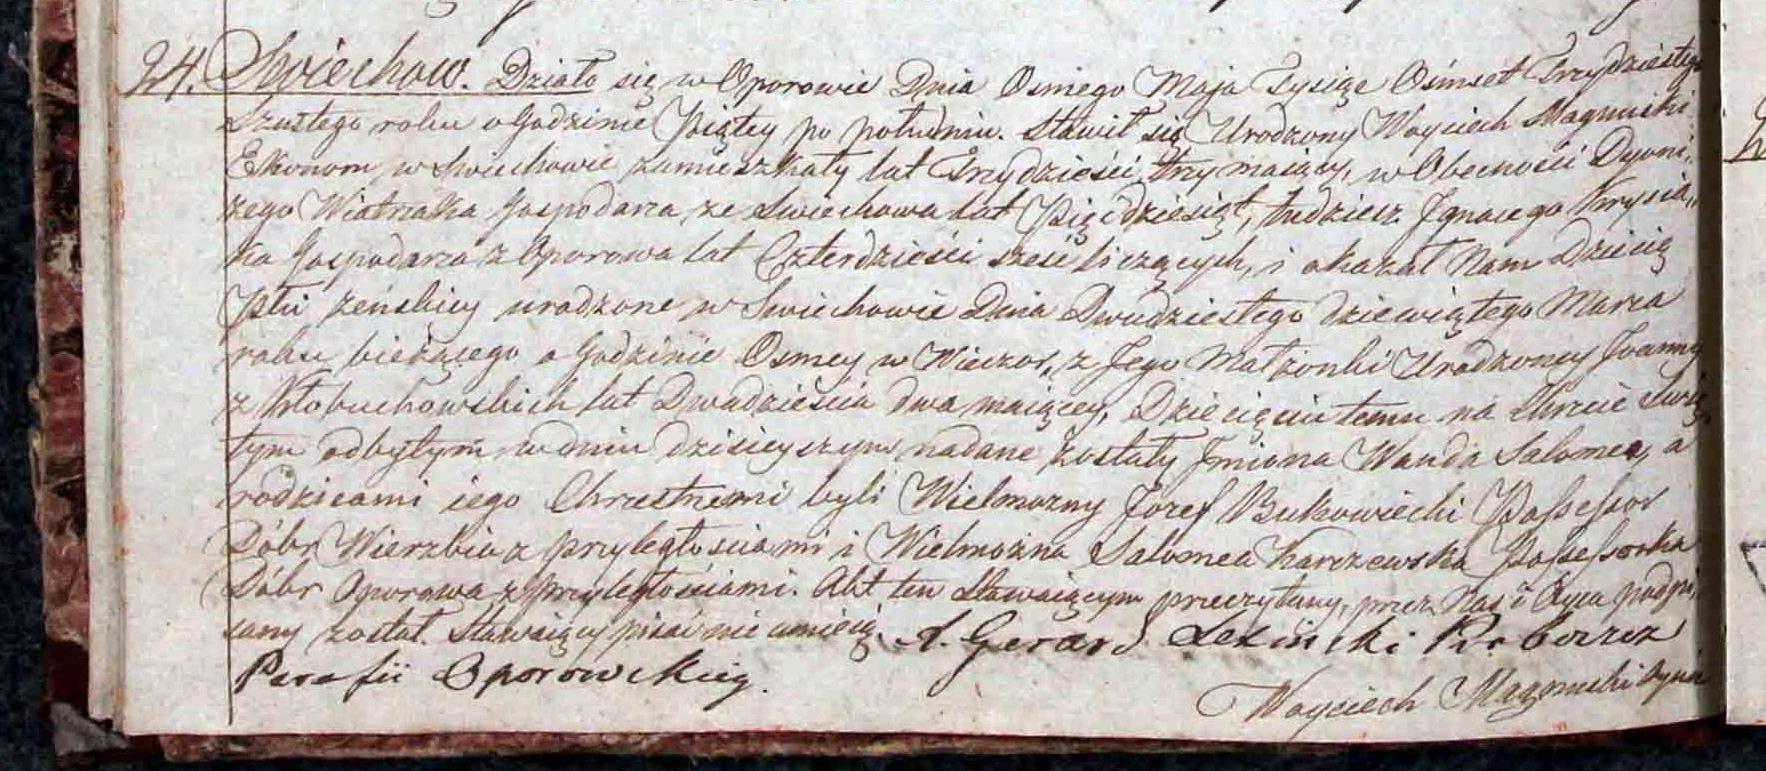 24. Swiechow. Działo się w Oporowie Dnia Osmego Maja Tysiąc Ośmset Trzydziestego
Szustego roku o Godzinie Piątey po południu. Stawił się Urodzony Woyciech Magnuski
Ekonom w Swiechowie zamieszkały lat Trzydzieści trzy maiący, w Obecności Dyoni„
zego Wiatraka Gospodarza ze Swiechowa lat Pięcdziesiąt, tudziesz Jgnacego Krysia„
ka Gospodarza z Oporowa lat Czterdzieści sześć liczących, i okazał Nam Dziecię
Płci żeńskiey urodzone w Swiechowie Dnia Dwudziestego dziewiątego Marca
roku bieżącego o Godzinie Osmey w Wieczor, z Jego Małżonki Urodzoney Joanny
z Kłobuchowskich lat Dwadzieścia dwa maiącey, Dziecięciu temu na Chrzcie Swię„
tym odbytym w dniu dzisieyszym nadane zostały Jmiona Wanda Salomea, a
rodzicami iego Chrzestnemi byli Wielmozny Jozef Bukowiecki Possessor
Dóbr Wierzbia z przyległosciami i Wielmożna Salomea Karczewska Possessorka
Dóbr Oporowa z przyległościami. Akt ten Stawaiącym przeczytany, przez Nas i Oyca podpi„
sany został. Stawaiący pisać nie umieią. X. Gerard Lesinski Proboszcz
Parafii Oporowskiey.
Woyciech Magnuski Oyciec